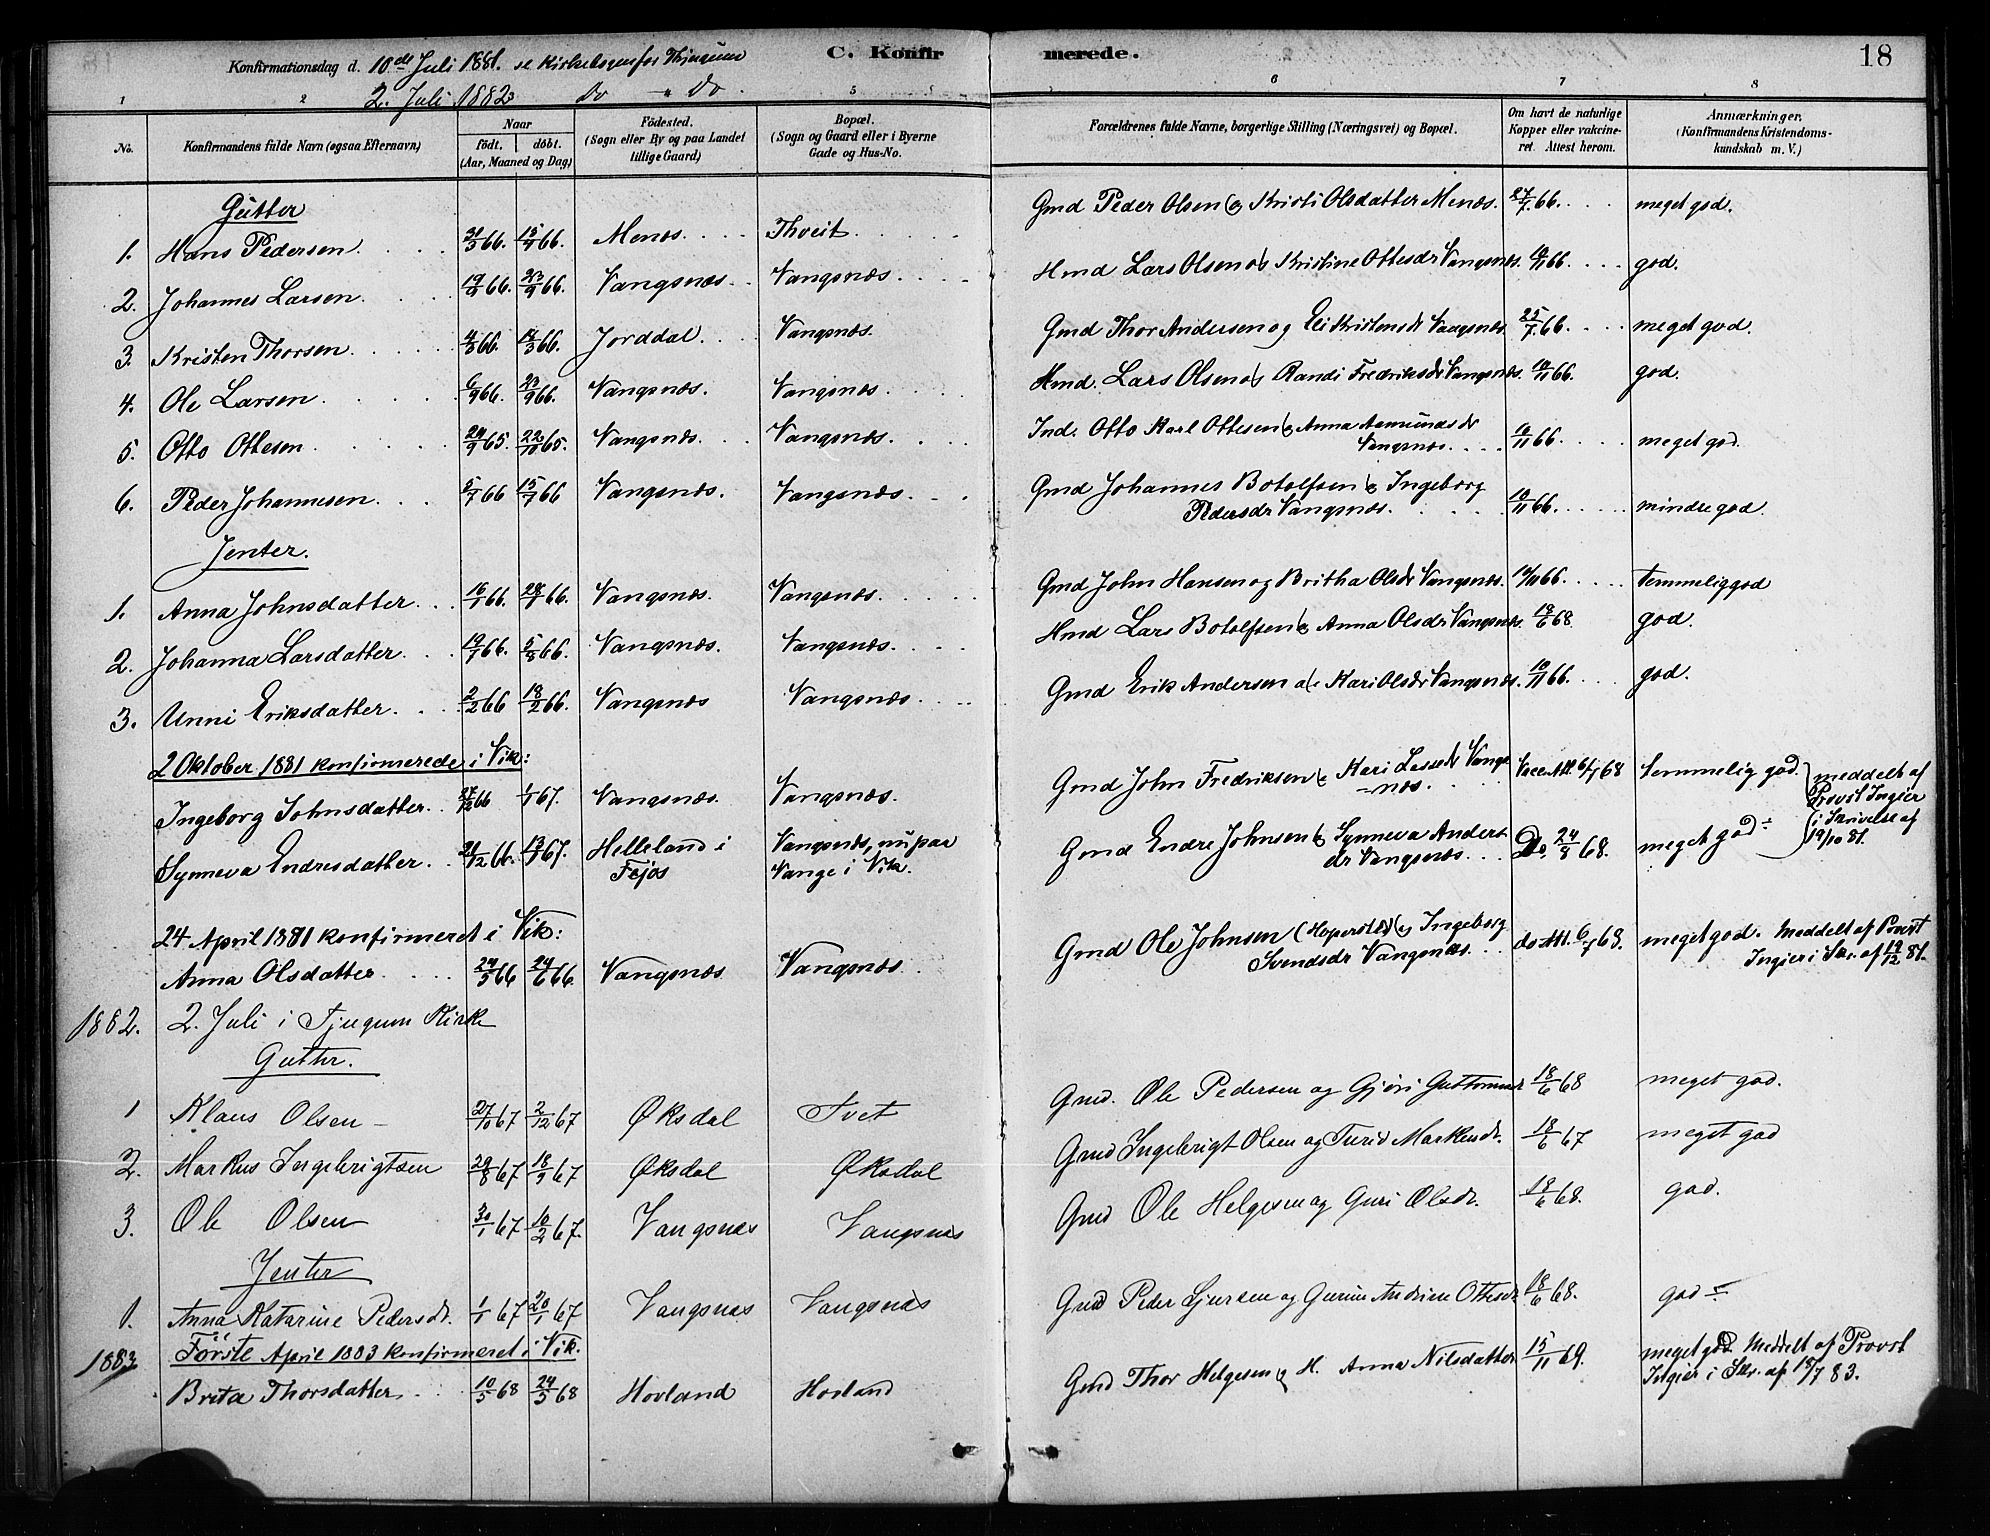 Konfirmationsdag d. 10de Juli 1881. se Kirkebogen for Thjugum C. Konfirmerede. 18
2. Juli 1882 Do " Do
1 2 5 6 7 8
No. Konfirmandens fulde Navn (ogsaa Efternavn) Naar født. døbt. (Aar, Maaned og Dag) Fødested. (Sogn eller By og paa Landet tillige Gaard) Bopæl. (Sogn og Gaard eller i Byerne Gade og Hus-No. Forældrenes fulde Navne, borgerlige Stilling (Næringsvei) og Bopæl. Om havt de naturlige Kopper eller vakcineret. Attest herom. Anmærkninger. (Konfirmandens Kristendomskundskab m. V.)
Gutter
1. Hans Pedersen 31/3 66. 15/4 66. Menes Thveit Gmd Peder Olsen og Kristi Olsdatter Menæs. 27/7 66. meget god.
2. Johannes Larsen 19/9 66. 23/9 66. Vangsnæs Vangsnæs Hmd Lars Olsen og Kristine Ottesdr Vangsnæs. 10/11 66. god.
3. Kristen Thorsen 4/3 66. 18/3 66. Jorddal Vangsnæs. Gmd Thor Andersen og Eli Kristensdr Vangsnæs. 25/7 66. meget god.
4. Ole Larsen 6/9 66. 23/9 66. Vangsnæs. Vangsnæs Hmd. Lars Olsen og Randi Fredriksdr Vangsnæs. 10/11 66. god.
5. Otto Ottesen 24/9 65. 22/10 65. Vangsnæs. Vangsnæs. Ind. Otto Karl Ottesen og Anna Aamundsdr
Vangsnæs. 10/11 66. meget god.
6. Peder Johannesen 5/7 66 15/7 66 Vangsnæs. Vangsnæs Gmd Johannes Botolfsen og Ingeborg
Pedersdr Vangsnæs. 10/11 66. mindre god.
Jenter.
1. Anna Johnsdatter 16/1 66. 28/1 66. Vangsnæs. Vangsnæs Gmd John Hansen og Britha Olsdr Vangsnæs. 10/11 66. temmelig god
2. Johanna Larsdatter 19/7 66. 5/8 66. Vangsnæs. Vangsnæs Hmd Lars Botolfsen og Anna Olsdr Vangsnæs. 18/6 68. god.
3. Unni Eriksdatter 2/2 66 18/2 66. Vangsnæs Vangsnæs Gmd Erik Andersen og Kari Olsdr Vangsnæs. 10/11 66. god.
2 Oktober 1881 konfirmerede i Vik:
Ingeborg Johnsdatter 27/12 66 1/1 67. Vangsnæs. Vangsnæs. Gmd John Fredriksen og Kari Lassedr Vangsnæs. Vacc. Att. 6/7 68 temmelig god. meddelt af Provst Ingier
Synneva Endresdatter 21/12 66. 13/1 67. Helleland i Fejos Vangsnæs, nu paa Vange i Vik. Gmd Endre Johnsen og Synneva Andersdr Vangsnæs. Do. 24/8 68. meget god ÷ i Skrivelse af 19/10 81.
24 April 1881 konfirmeret i Vik:
Anna Olsdatter 24/5 66 24/6 66. Vangsnæs Vangsnæs Gmd Ole Johnsen (Hopersted) og Ingeborg Svendsdr Vangsnæs. do Att. 6/7 68. meget god. Meddelt af Provst
Ingier i Skr. af 19/12 81.
1882. 2. Juli i Tjugum Kirke
Gutter.
1 Klaus Olsen 27/10 67 2/12 67 Øksdal Tvet Gmd. Ole Pedersen og Gjøri Guttormsdr 18/6 68 meget god.
2. Markus Ingebrigtsen 29/8 67 18/9 67 Øksdal Øksdal Gmd Ingebrigt Olsen og Turid Markusdr. 18/6 67 meget god
3. Ole Olsen 30/1 67 10/2 67. Vangsnæs Vangsnæs Gmd Ole Helgesen og Guri Olsdr. 18/6 68. god.
Jenter
1. Anna Katarine Pedersdr. 1/1 67 20/1 67 Vangsnæs Vangsnæs Gmd Peder Sjursen og Andrine Ottesdr 18/6 68. god
1883 Første April 1883 konfirmeret i Vik.
Brita Thorsdatter 10/5 68 24/5 68 Hovland Hovland Gmd Thor Helgesen og H. Anna Nilsdatter 15/11 69. meget god. Meddelt af Provst
Ingier i Skr. af 18/7 83.